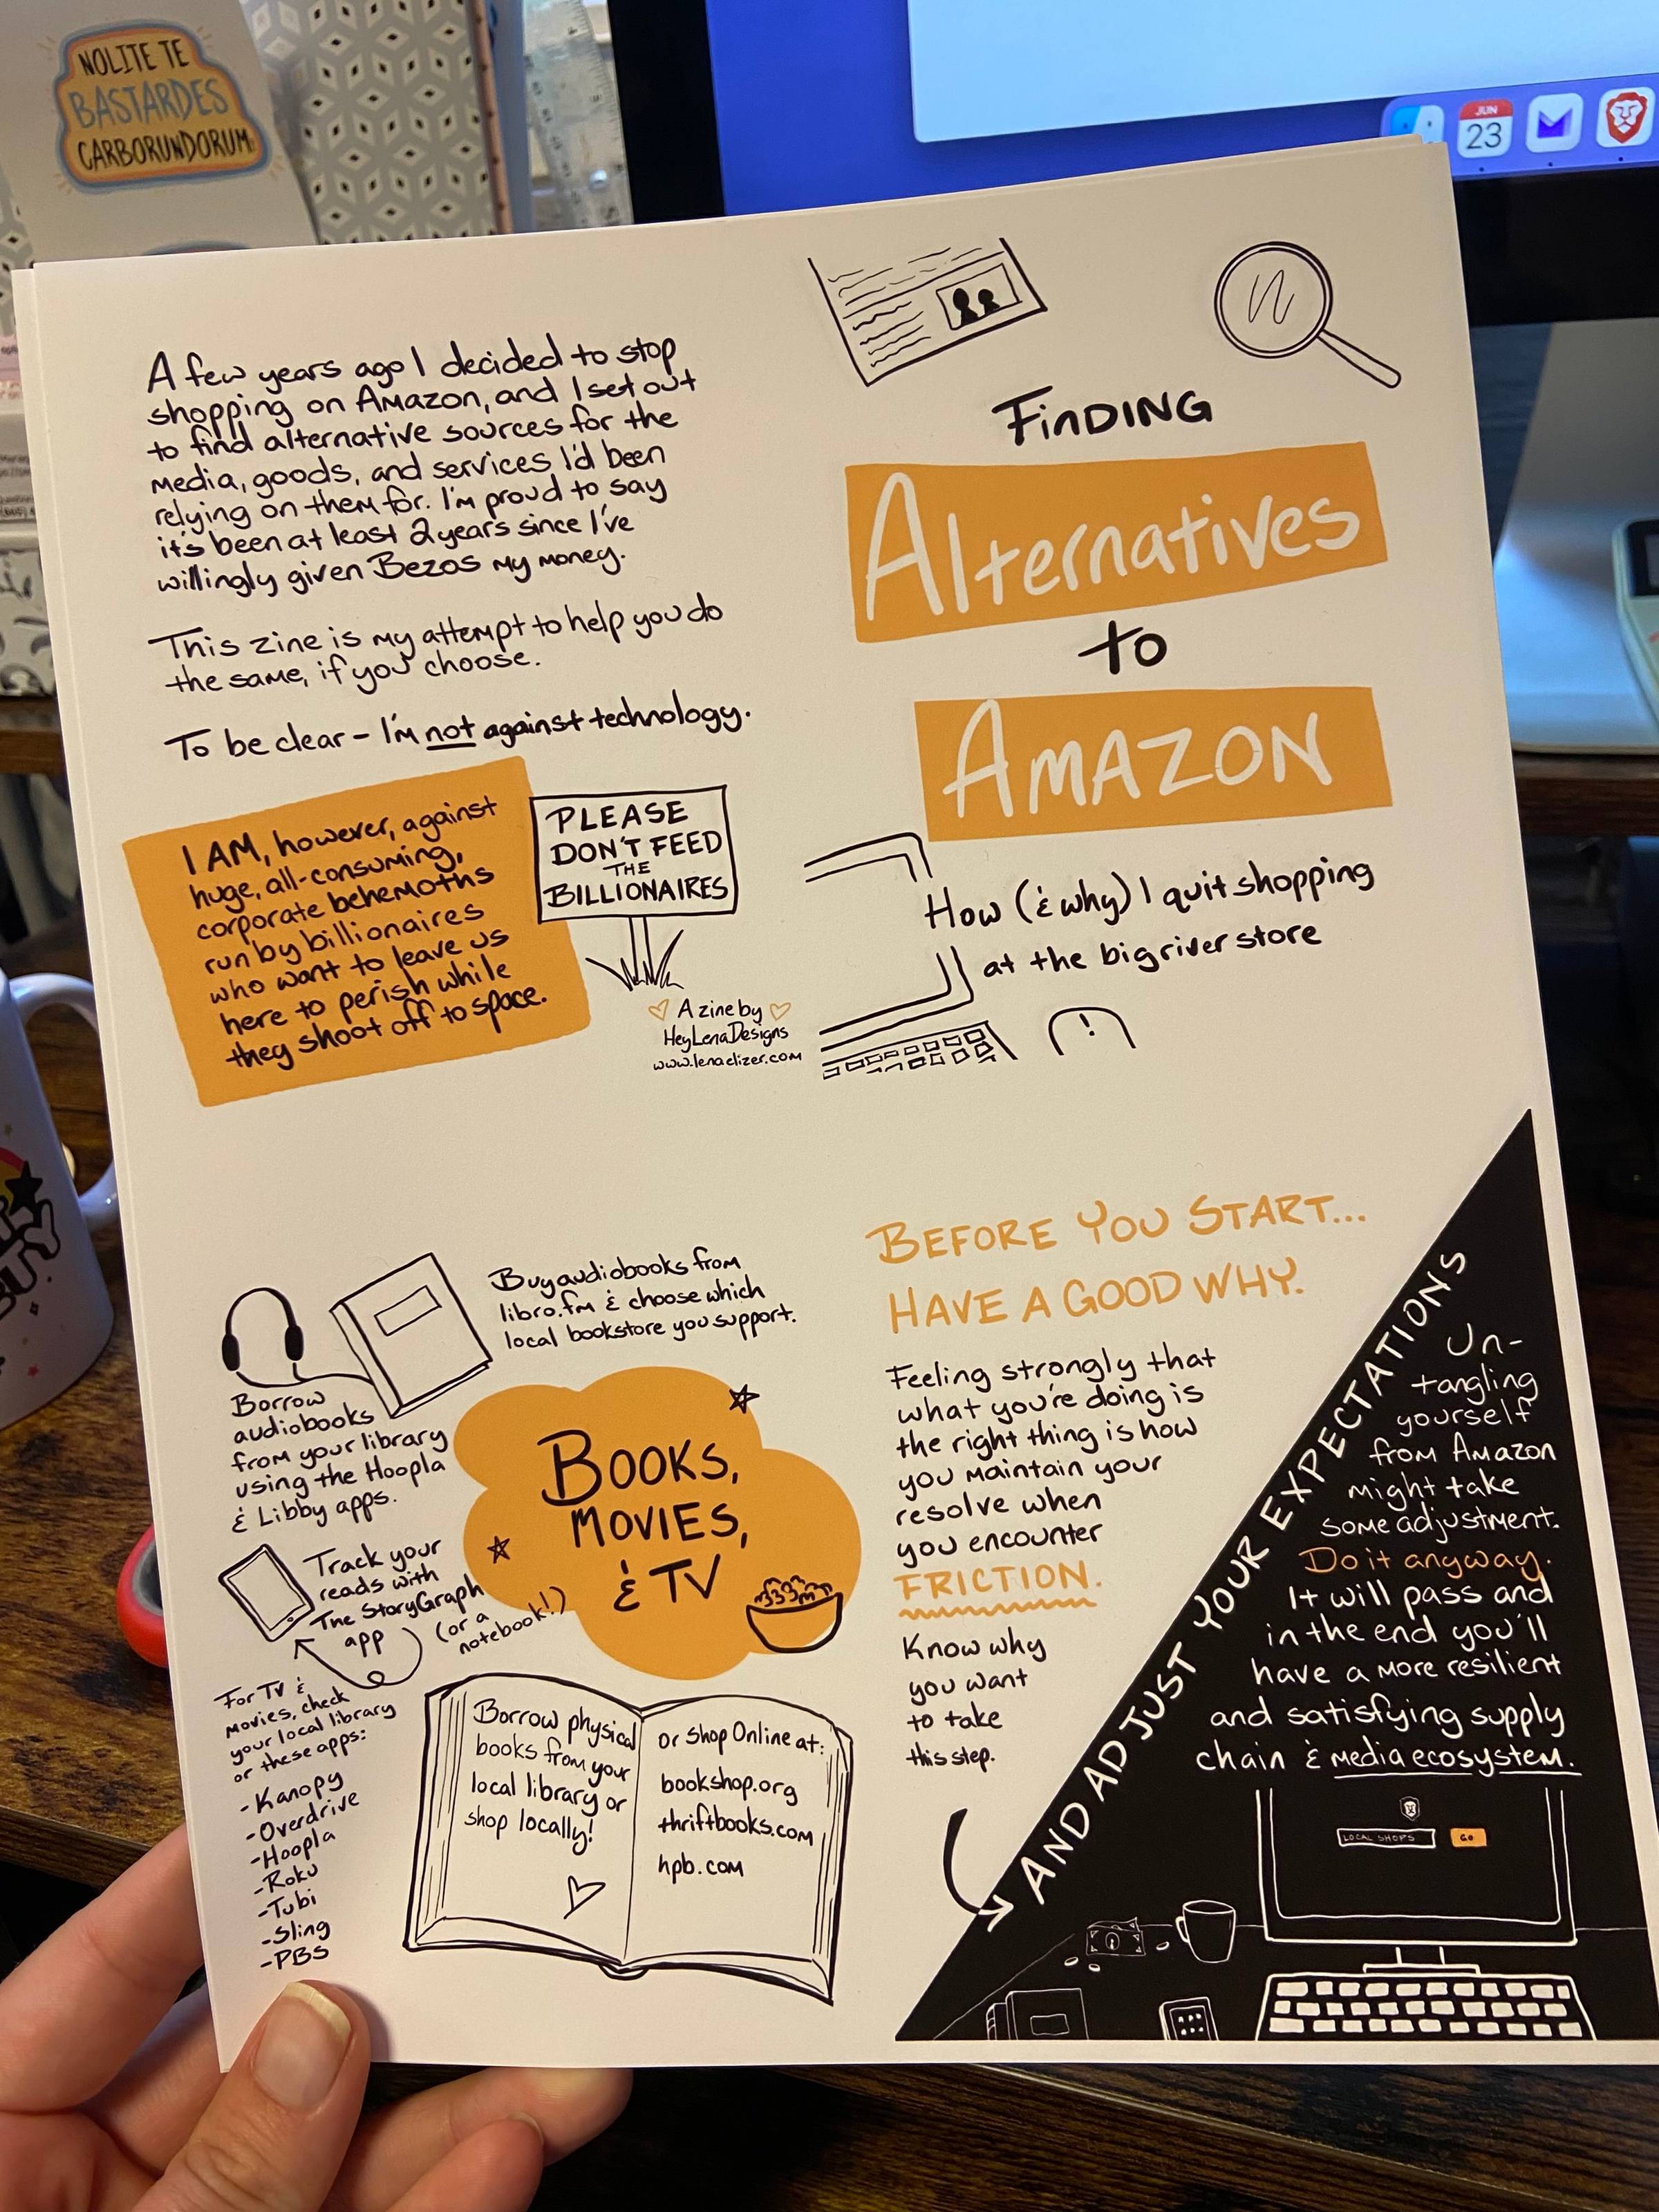 NOLITE TE
BASTARDES
CARBORUNDORUM
JUN
23
A few years ago I decided to stop
shopping on Amazon, and I set out
to find alternative sources for the
media, goods, and services I'd been
relying on them for. I'm proud to say
it's been at least 2 years since I've
willingly given Bezos my money.
This zine is my attempt to help you do
the same, if you choose.
To be clear - I'm not against technology.
I AM, however, against
huge, all-consuming,
corporate behemoths
run by billionaires
who want to leave us
here to perish while
they shoot off to space.
PLEASE
DON'T FEED
THE
BILLIONAIRES
A zine by
HeyLenaDesigns
www.lenaelizer.com
FINDING
Alternatives
to
AMAZON
How (& why) I quit shopping
at the big river store
!
Buy audiobooks from
libro.fm & choose which
local bookstore you support.
Borrow
audiobooks
from your library
using the Hoopla
& Libby apps.
BOOKS,
MOVIES,
& TV
Track your
reads with
The StoryGraph
app
(or a
notebook!)
For TV &
movies, check
your local library
or these apps:
- Kanopy
- Overdrive
- Hoopla
- Roku
- Tubi
- Sling
- PBS
Borrow physical
books from your
local library or
shop locally!
or Shop Online at:
bookshop.org
thriftbooks.com
hpb.com
BEFORE YOU START...
HAVE A GOOD WHY.
Feeling strongly that
what you're doing is
the right thing is how
you maintain your
resolve when
you encounter
FRICTION.
Know why
you want
to take
this step.
AND ADJUST YOUR EXPECTATIONS
Un-
tangling
yourself
from Amazon
might take
some adjustment.
Do it anyway.
It will pass and
in the end you'll
have a more resilient
and satisfying supply
chain & media ecosystem.
LOCAL SHOPS
GO